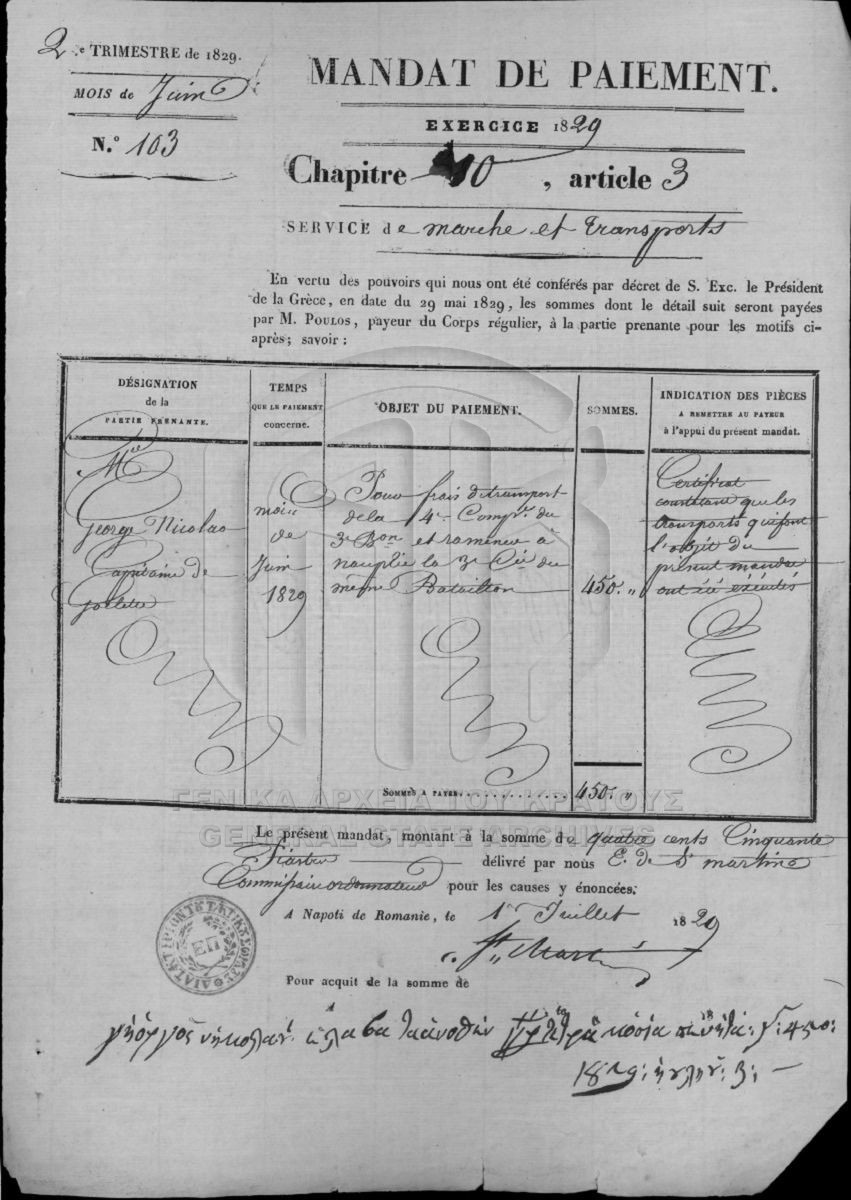 2.e TRIMESTRE de 1829.
MOIS de Juin
N.o 103
MANDAT DE PAIEMENT.
EXERCICE 1829
Chapitre 10, article 3
SERVICE de marche et transports
En vertu des pouvoirs qui nous ont été conférés par décret de S. Exc. le Président
de la Grèce, en date du 29 mai 1829, les sommes dont le détail suit seront payées
par M. Poulos, payeur du Corps régulier, à la partie prenante pour les motifs ci-
après; savoir :
DÉSIGNATION
de la
PARTIE PRENANTE.
TEMPS
QUE LE PAIEMENT
concerne.
OBJET DU PAIEMENT.
SOMMES.
INDICATION DES PIÈCES
A REMETTRE AU PAYEUR
à l'appui du présent mandat.
George Nicolao
Capitaine de
Golette
mois
de
Juin
1829
Pour frais de transport
de la 4e Comp.ie du
3e Bon et ramener à
nauplie la 3e Cie du
meme Bataillon
450. "
Certificat
constatant que les
transports qui font
l'objet du
présent mandat
ont été éxécutés
SOMMES A PAYER
450. "
ΓΕΝΙΚΑ ΑΡΧΕΙΑ ΤΟΥ ΚΡΑΤΟΥΣ
GENERAL STATE ARCHIVES
Le présent mandat, montant à la somme de quatre cents Cinquante
Piastres délivré par nous E. de St martin
Commissaire ordonnateur pour les causes y énoncées.
A Napoli de Romanie, le 1er Juillet 1829
St Martin
Pour acquit de la somme de
γηόργος νηκολάου έλαβα 450:
1829: